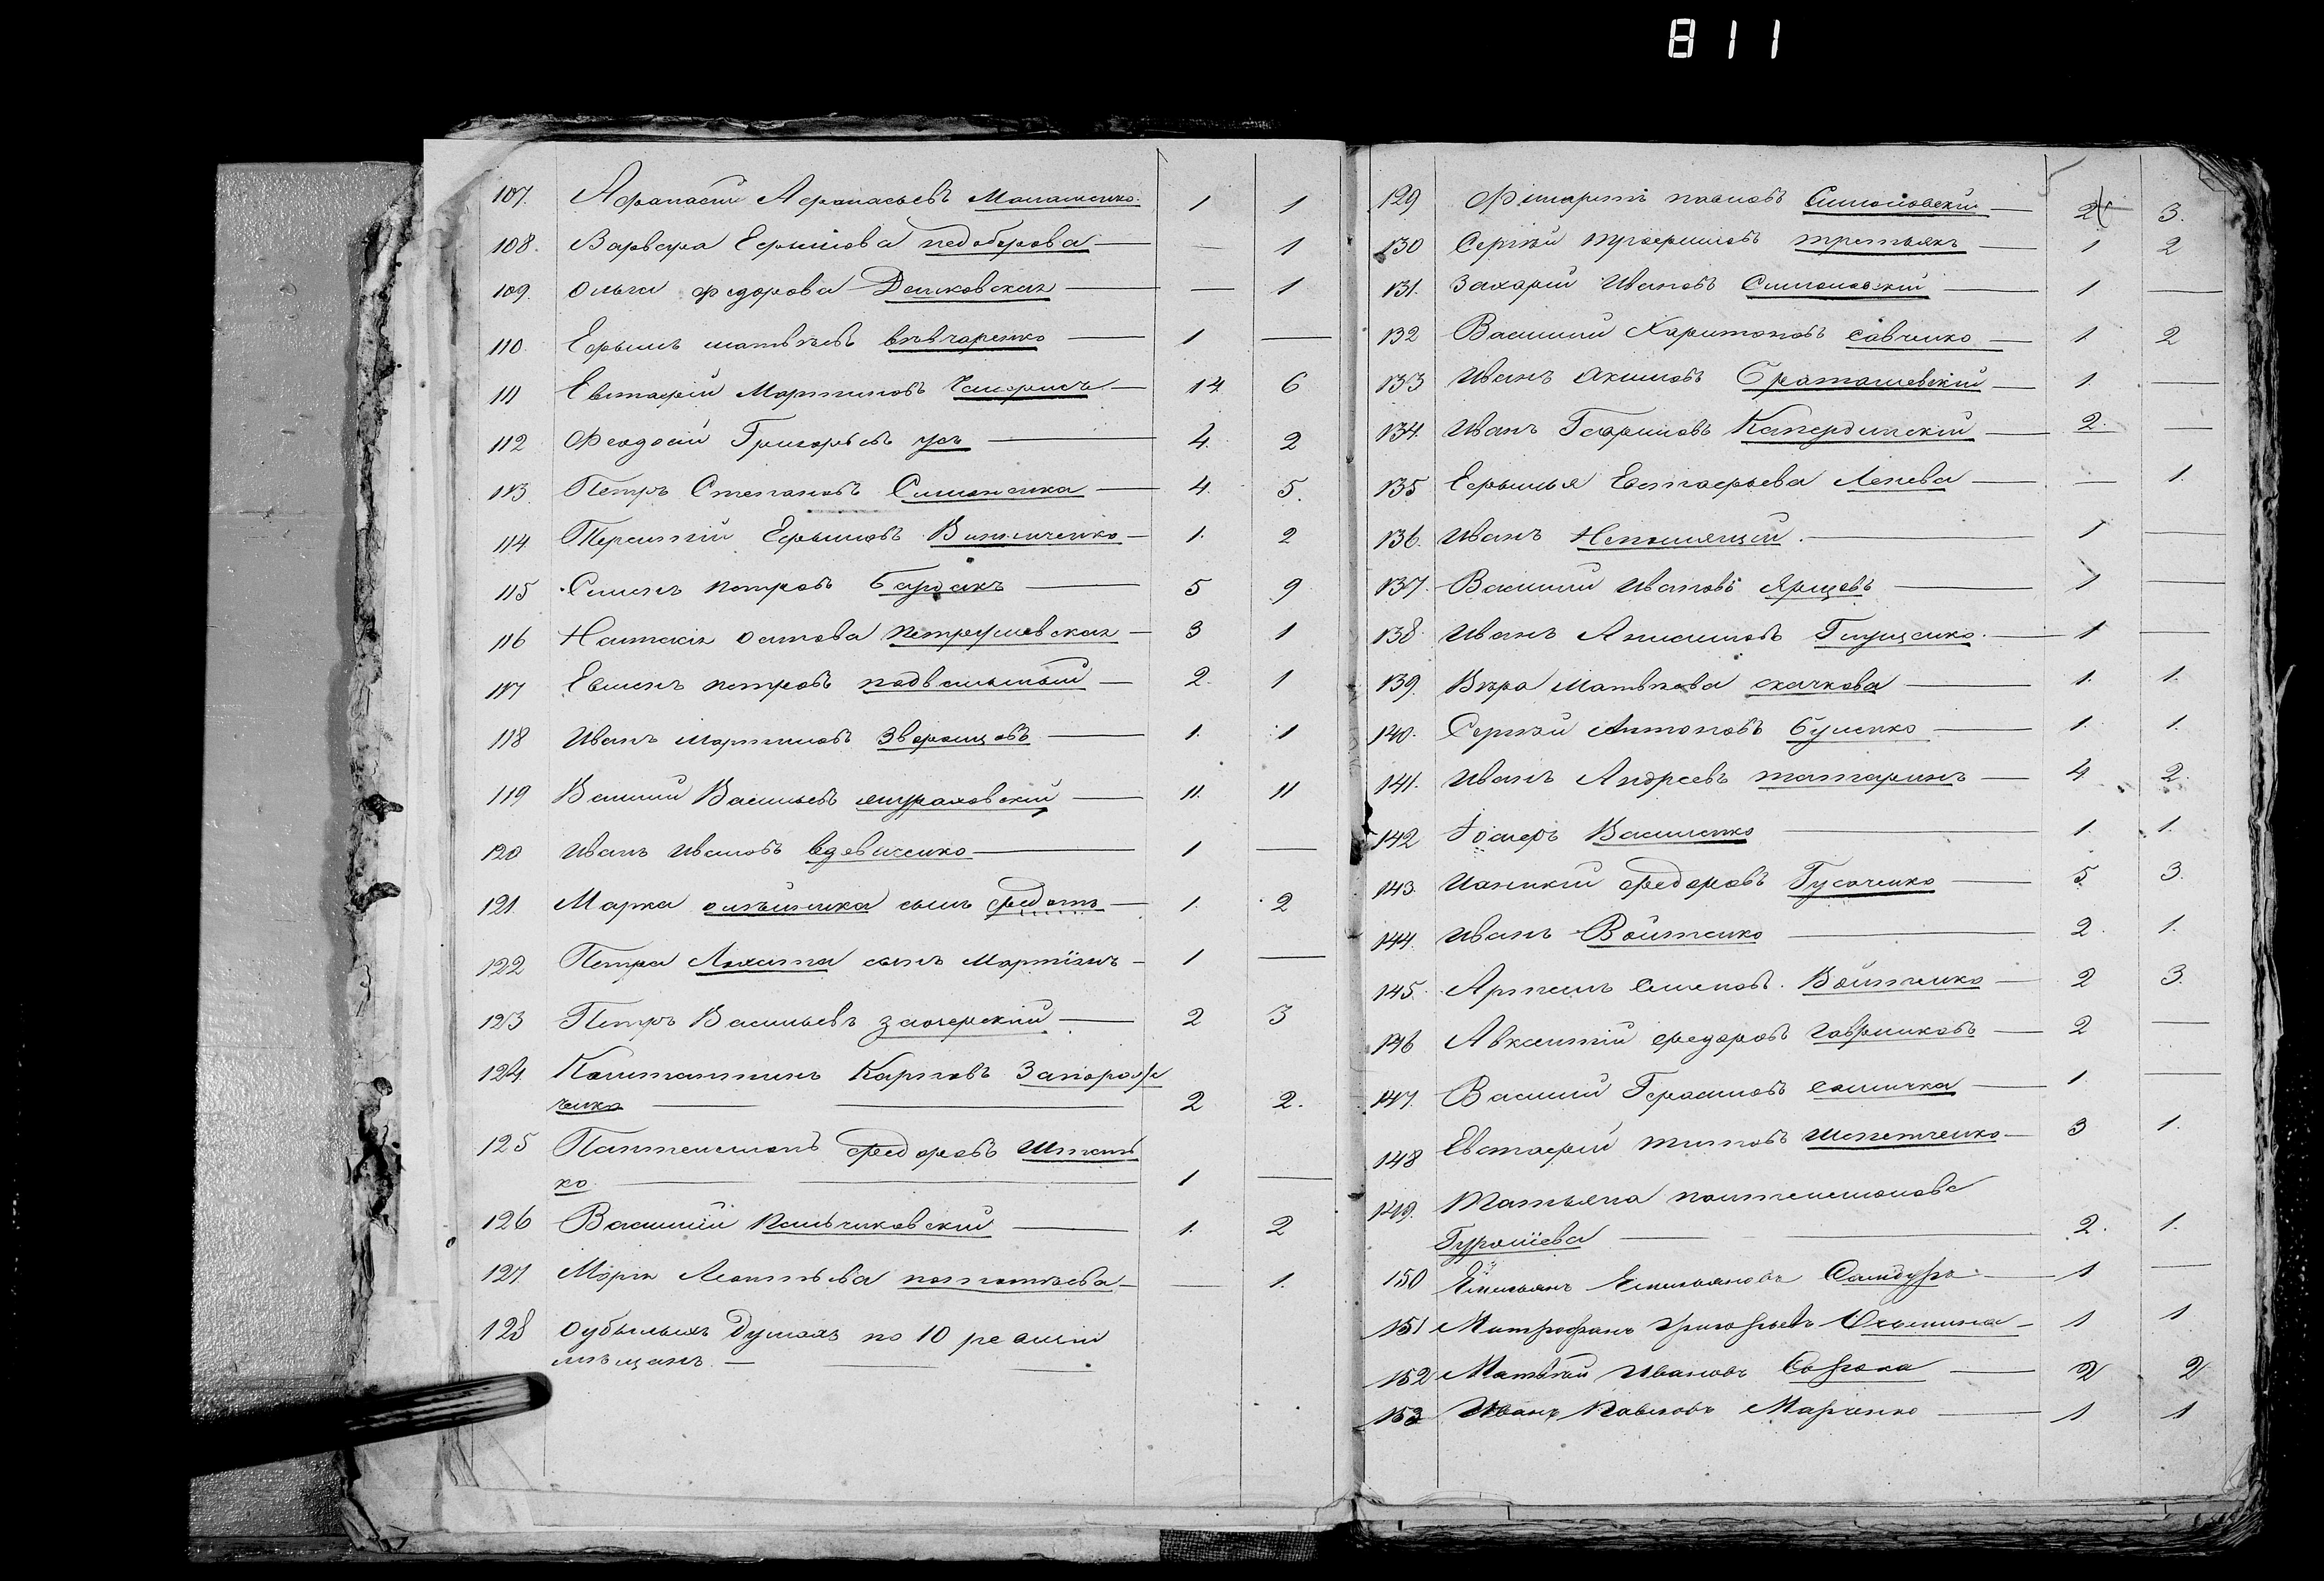 811
107. Афанасий Афанасьевъ Малашенко. 1 1
108. Варвара Ефимова недоборова — — 1
109. Ольга федорова Данковская — — 1
110. Ефимъ матвѣевъ вовчаренко — 1 —
111 Евстафий Мартиновъ — 14 6
112 Феодосий Григорьевъ усъ — 4. 2
113. Петръ Степановъ Симоненка — 4. 5.
114 Терентий Ефимовъ Винниченко — 1. 2
115 Семенъ петровъ Бардакъ — 5 9
116 осипова петрушевская — 3 1
117 петровъ — 2. 1
118 Иванъ мартиновъ — 1. 1
119 Василий Васильевъ — 11. 11
120 Иванъ Ивановъ вдовиченко — 1 —
121. Марка сынъ федотъ — 1. 2
122 Петра сынъ — 1 —
123 Петръ Васильевъ заозерский — 2 3
124. Константинъ Карповъ Запорож
ченко — — 2 2.
125 Пантелемонъ федоровъ
ко. — 1 —
126 Василий Пальчиковский — 1. 2
127. Марья Леонтьева — — 1.
128 О убылыхъ душахъ по 10 ревизии
мѣщанъ. — — —
129 Филаретъ павловъ Симоновский — 2 3.
130 Сергѣй трофимовъ третьякъ — 1 2
131. Захарий Ивановъ Симоновский — 1 —
132 Василий Харитоновъ савченко — 1. 2
133 Иванъ Акимовъ — 1. —
134. Иванъ — 2. —
135 Ефимья Евстафьева Ленева — — 1.
136. Иванъ Непомнящий. — 1 —
137. Василий Ивановъ Ярцовъ — 1 —
138. Иванъ Анисимовъ Глущенко. — 1 —
139. Вѣра Матвѣева скачкова — 1. 1.
140. Сергѣй Антоновъ Буленко — 1. 1.
141. Иванъ Андреевъ татаринъ — 4 2.
142 Василенко — 1. 1.
143. Иоаникий федоровъ Гусаченко — 5. 3.
144. Иванъ Войтенко — 2. 1.
145. Артемъ Семеновъ. Войтенко — 2 3.
146 Авксентий федоровъ гавриковъ — 2 —
147. Василий Герасимовъ — 1. —
148 Евстафий титовъ Шепетченко — 3 1.
149. Татьяна пантелемонова
— — 2. 1.
150 Емельянъ Емельяновъ — 1 —
151 Митрофанъ Григорьевъ — 1 1
152 Матвѣй Ивановъ Сорока — 2 2
153 Иванъ Павловъ Марченко — 1 1